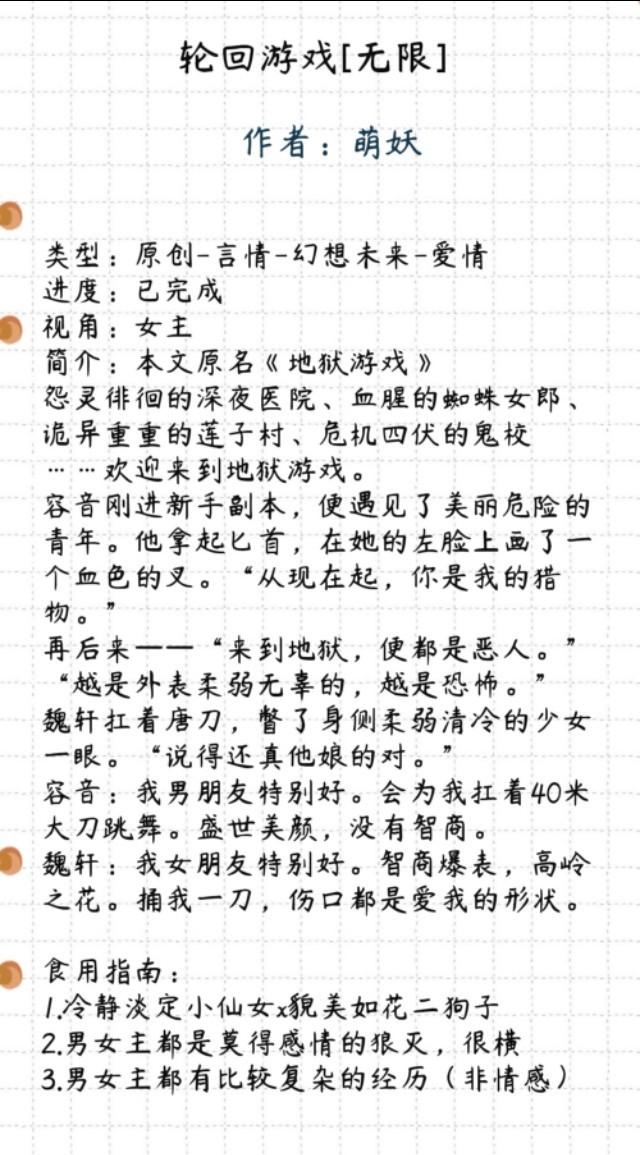 轮回游戏[无限]
作者：萌妖
类型：原创-言情-幻想未来-爱情
进度：已完成
视角：女主
简介：本文原名《地狱游戏》
怨灵徘徊的深夜医院、血腥的蜘蛛女郎、
诡异重重的莲子村、危机四伏的鬼校
……欢迎来到地狱游戏。
容音刚进新手副本，便遇见了美丽危险的
青年。他拿起匕首，在她的左脸上画了一
个血色的叉。“从现在起，你是我的猎
物。”
再后来——“来到地狱，便都是恶人。”
“越是外表柔弱无辜的，越是恐怖。”
魏轩扛着唐刀，瞥了身侧柔弱清冷的少女
一眼。“说得还真他娘的对。”
容音：我男朋友特别好。会为我扛着40米
大刀跳舞。盛世美颜，没有智商。
魏轩：我女朋友特别好。智商爆表，高岭
之花。捅我一刀，伤口都是爱我的形状。
食用指南：
1.冷静淡定小仙女x貌美如花二狗子
2.男女主都是莫得感情的狼灭，很横
3.男女主都有比较复杂的经历（非情感）